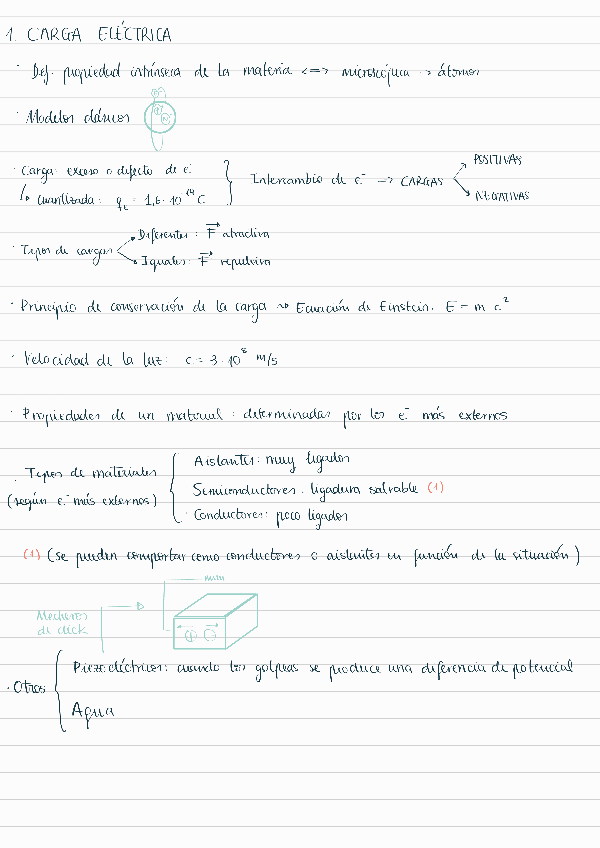 1. CARGA ELÉCTRICA
· Def. propiedad intrínseca de la materia <=> microscópica -> átomos
· Modelos clásicos
· Carga: exceso o defecto de e⁻
↳ Cuantizada: qₑ = 1,6·10⁻¹⁹ C
Intercambio de e⁻ -> CARGAS
POSITIVAS
NEGATIVAS
· Tipos de cargas
Diferentes: F atractiva
Iguales: F repulsiva
· Principio de conservación de la carga ~> Ecuación de Einstein. E = m c²
· Velocidad de la luz: c = 3·10⁸ m/s
· Propiedades de un material: determinadas por los e⁻ más externos
· Tipos de materiales
(según e⁻ más externos)
Aislantes: muy ligados
Semiconductores: ligadura salvable (1)
· Conductores: poco ligados
(1) (se pueden comportar como conductores o aislantes en función de la situación)
Mecheros
de click
· Otros
Piezoeléctricos: cuando los golpeas se produce una diferencia de potencial
Agua